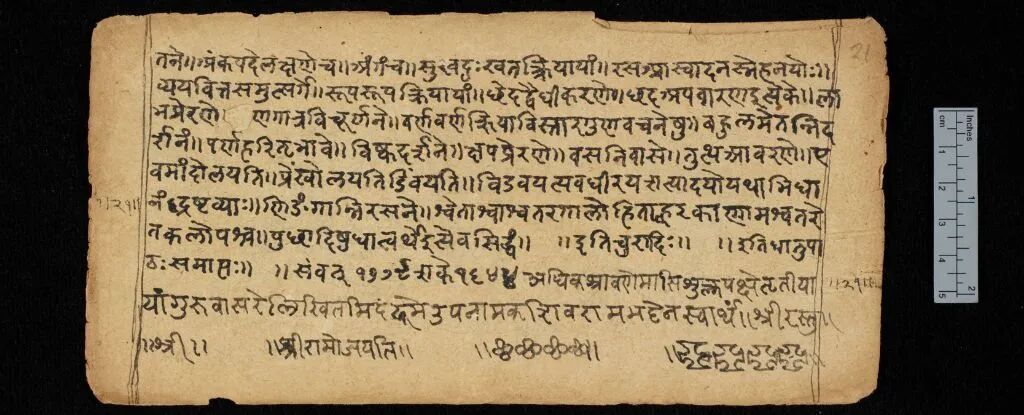 तने॥ अंकपदेलक्षणेच॥ अंगंच॥ सुखदुःखतत्क्रियायां॥ रसआस्वादनस्नेहनयोः॥
व्ययवित्तसमुत्सर्गे॥ रूपरूपक्रियायां॥ छेदद्वैधीकरणे॥ छदअपवारणइत्येके॥ ला
भप्रेरणे॥ व्रणगात्रविचूर्णने॥ वर्णवर्णक्रियाविस्तारगुणवचनेषु॥ बहुलमेतन्निद
र्शनं॥ पर्णहरितभावे॥ विष्कदर्शने॥ क्षपप्रेरणे॥ वसनिवासे॥ तुत्थआवरणे॥ ए
वमांदोलयति॥ प्रेंखोलयति विडंबयति॥ अवधीरयइत्यादयोयथाभिधा
नंद्रष्टव्याः॥ णिङंगान्निरसने॥ श्वेताश्वाश्वतरगालोडिताह्वरकाणामश्वतरे
तकलोपश्च॥ पुछादिषुधात्वर्थइत्येवसिद्धं॥ ॥इतिचुरादिः॥ ॥इतिधातुपा
ठःसमाप्तः॥ ॥संवत् १७७९ शके १६४४ अधिकश्रावणेमासिशुक्लपक्षेतृतीया
यांगुरुवासरेलिखितमिदं उपनामक स्वार्थं॥ श्रीरस्तु॥
॥श्री॥ ॥श्रीरामोजयति॥ ॥छ॥छ॥छ॥छ॥